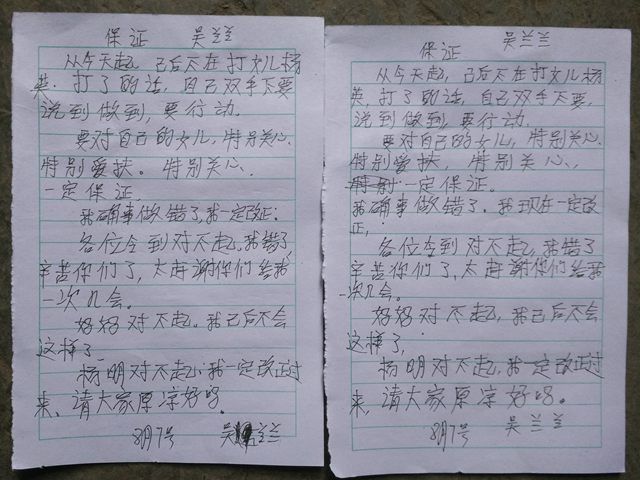 保证 吴兰兰
从今天起,己后不在打女儿杨
英.打了的话,自己双手不要
说到做到,要行动.
要对自己的女儿,特别关心.
特别爱扶.特别关心.
一定保证
我确事做错了,我一定改正.
各位令到对不起,我错了,
辛苦你们了,太赶谢你们给我
一次几会.
好好对不起.我己后不会
这样了
杨明对不起,我一定改正过
来、请大家原凉好吗.
8月7号 吴兰兰
保证 吴兰兰
从今天起,己后不在打女儿杨
英,打了的话,自己双手不要,
说到做到,要行动.
要对自己的女儿,特别关心.
特别爱扶,特别关心、,
一定保证。
我确事做错了.我现在一定改
正,
各位令到对不起,我错了
辛苦你们了,太赶谢你们给我
一次几会。
好好对不起,我己后不会
这样了,
杨明对不起,我一定改正过
来,请大家原凉好吗。
8月7号 吴兰兰